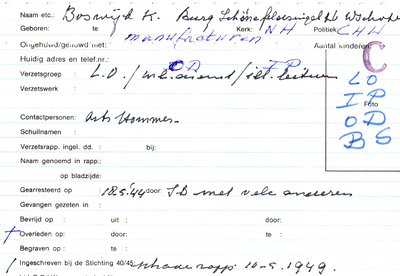 Naam etc.: Boswijk K. Burg
Geboren: te Kerk: NH Politiek CHU
manufacturen
Ongehuwd/gehuwd met: Aantal kinderen:
Huidig adres en telef.nr.:
C
OD IP
Verzetsgroep : L.O. / inl. dienst / ill. lectuur
LO
Verzetswerk :
IP
Foto
OD
Contactpersonen: arts Hommes
BS
Schuilnaam :
Verzetsrapp. ingel. dd. : bij:
Naam genoemd in rapp.:
op bladzijde:
Gearresteerd op : 18.5.'44 door: SD met vele anderen
Gevangen gezeten in :
Bevrijd op : uit : door:
Overleden op: te : door:
Begraven op : te :
Ingeschreven bij de Stichting 40/45: rapp 10-5.1949.